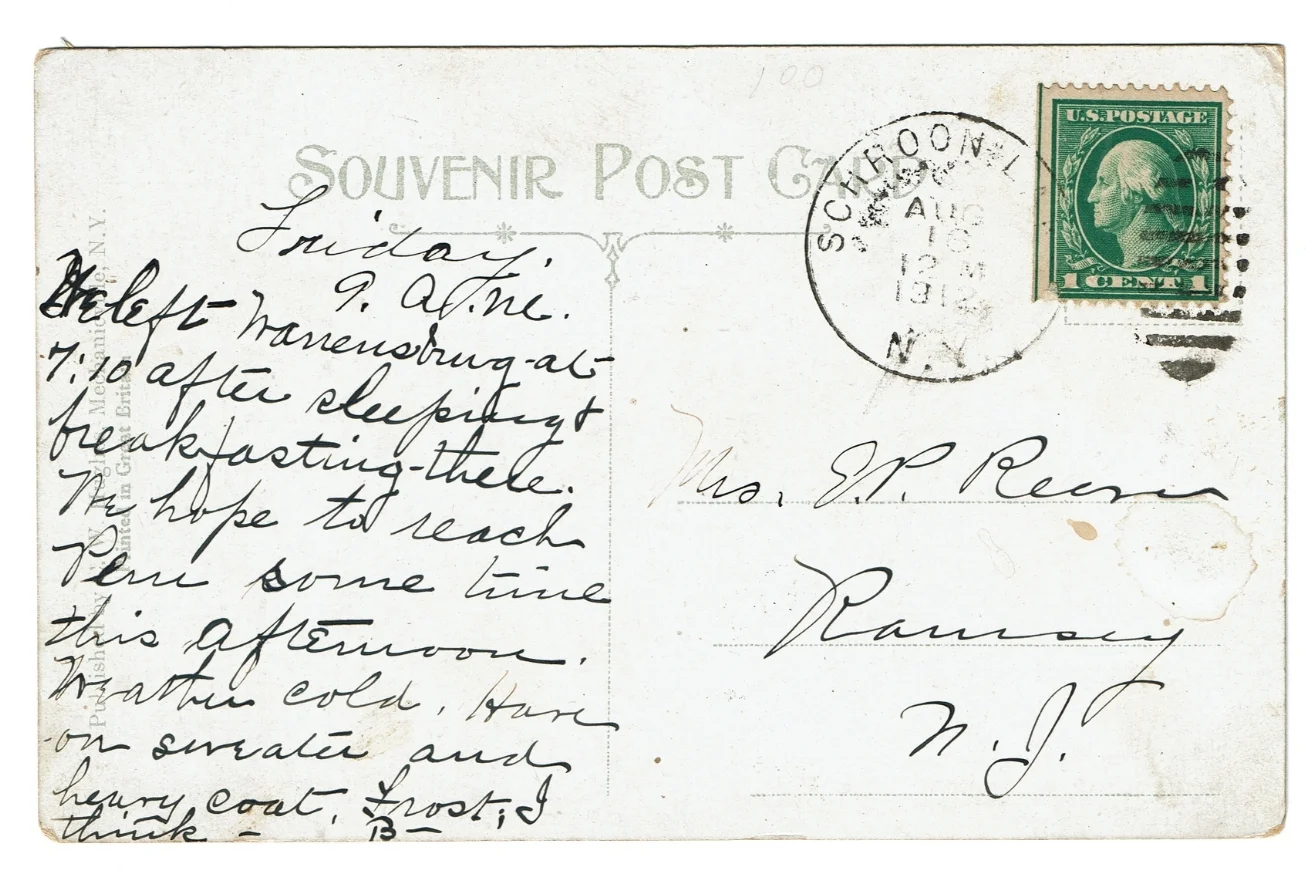 100
SOUVENIR POST CARD
SCHROON L
AUG
12 M
1912
N.Y.
U.S. POSTAGE
1 CENT 1
Friday.
9. A.M.
We left Warrensburg at
7:10 after sleeping &
breakfasting there.
We hope to reach
Peru some time
this afternoon.
Weather cold. Have
on sweater and
heavy coat. Frost, I
think - B-
Mrs. E.P.
Ramsey
N.J.
Published by W. Mechanicville, N.Y.
Printed in Great Britain